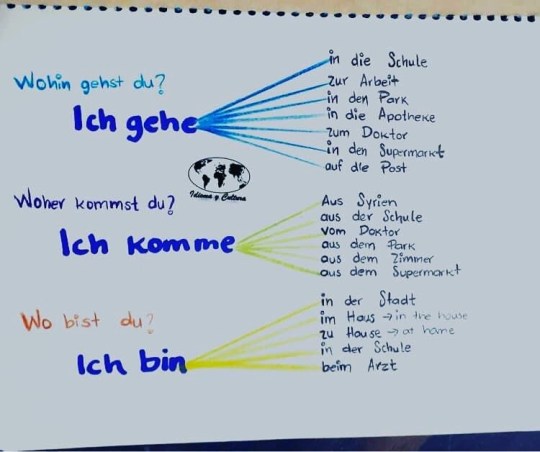 Wohin gehst du?
Ich gehe
in die Schule
zur Arbeit
in den Park
in die Apotheke
zum Doktor
in den Supermarkt
auf die Post
Idioma y Cultura
Woher kommst du?
Ich komme
Aus Syrien
aus der Schule
vom Doktor
aus dem Park
aus dem Zimmer
aus dem Supermarkt
Wo bist du?
Ich bin
in der Stadt
im Haus → in the house
zu Hause → at home
in der Schule
beim Arzt